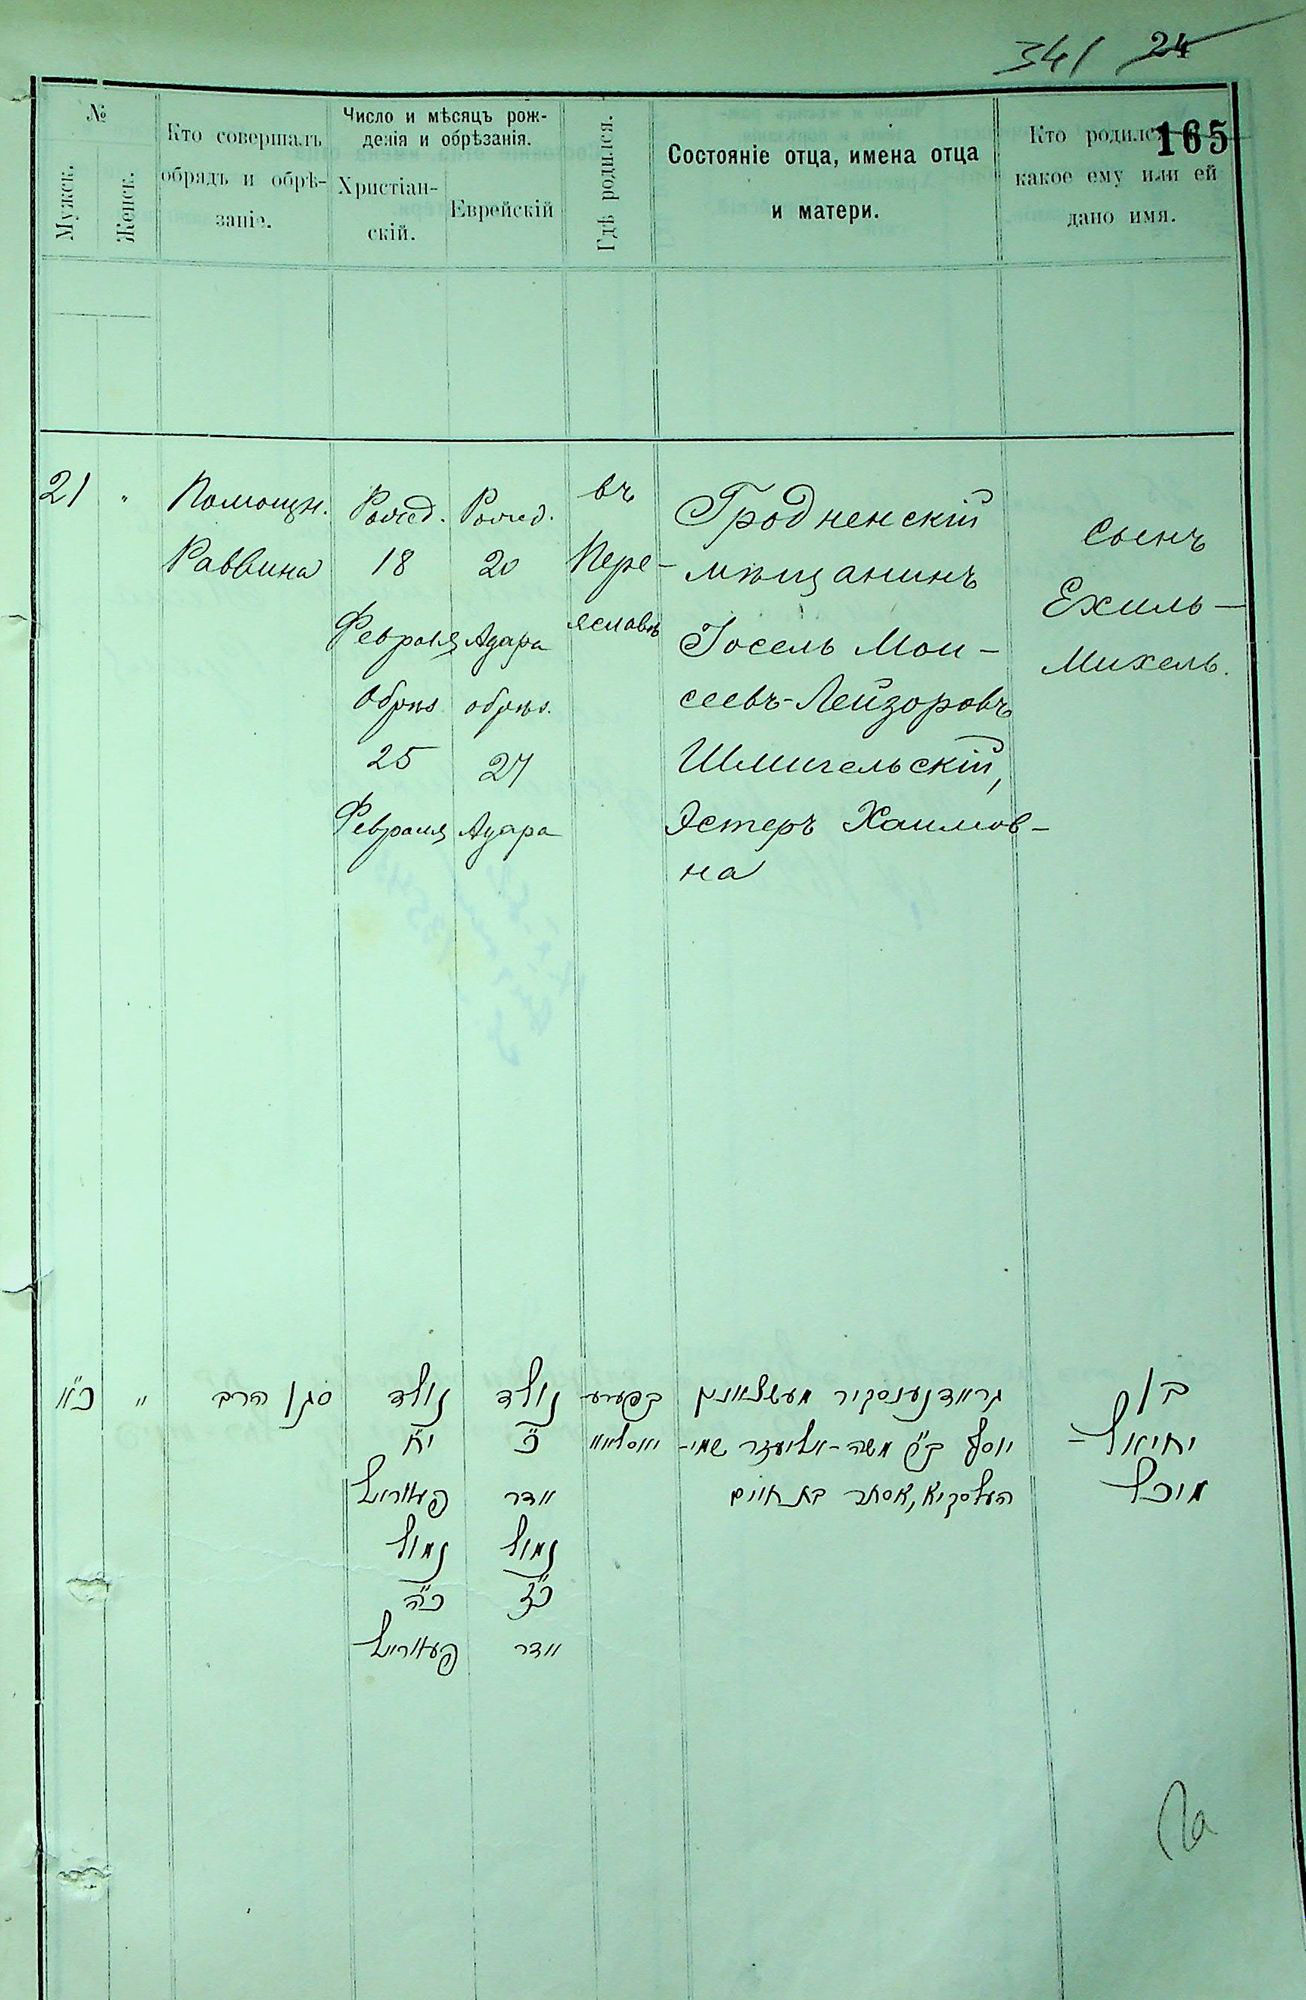 341 24
165
№
Мужск.
Женск.
Кто совершалъ
обрядъ и обрѣ-
заніе.
Число и мѣсяцъ рож-
денія и обрѣзанія.
Христіан-
скій.
Еврейскій
Гдѣ родился.
Состояніе отца, имена отца
и матери.
Кто родился
какое ему или ей
дано имя.
21
"
Помощн.
Раввина
Рожд.
18
Февраля
Обрѣз.
25
Февраля
Рожд.
20
Адара
обрѣз.
27
Адара
въ
Пере-
яславѣ
Гродненскій
мѣщанинъ
Іосель Мои-
сеевъ-Лейзоровъ
Шмигельскій,
Эстеръ Хаимов-
на
сынъ
Ехиль-
Михель.
כ"א
"
סגן הרב
נולד
י"ח
פעווריעל
נמול
כ"ה
פעווריעל
נולד
כ'
אדר
נמול
כ"ז
אדר
בפערע
יאסלאוו
גראדנענסקיר מעשצאנין
יוסף ב"ר משה-אליעזר שמי-
העלסקיא, אסתר בת חיים
בן
יחיאל-
מיכל